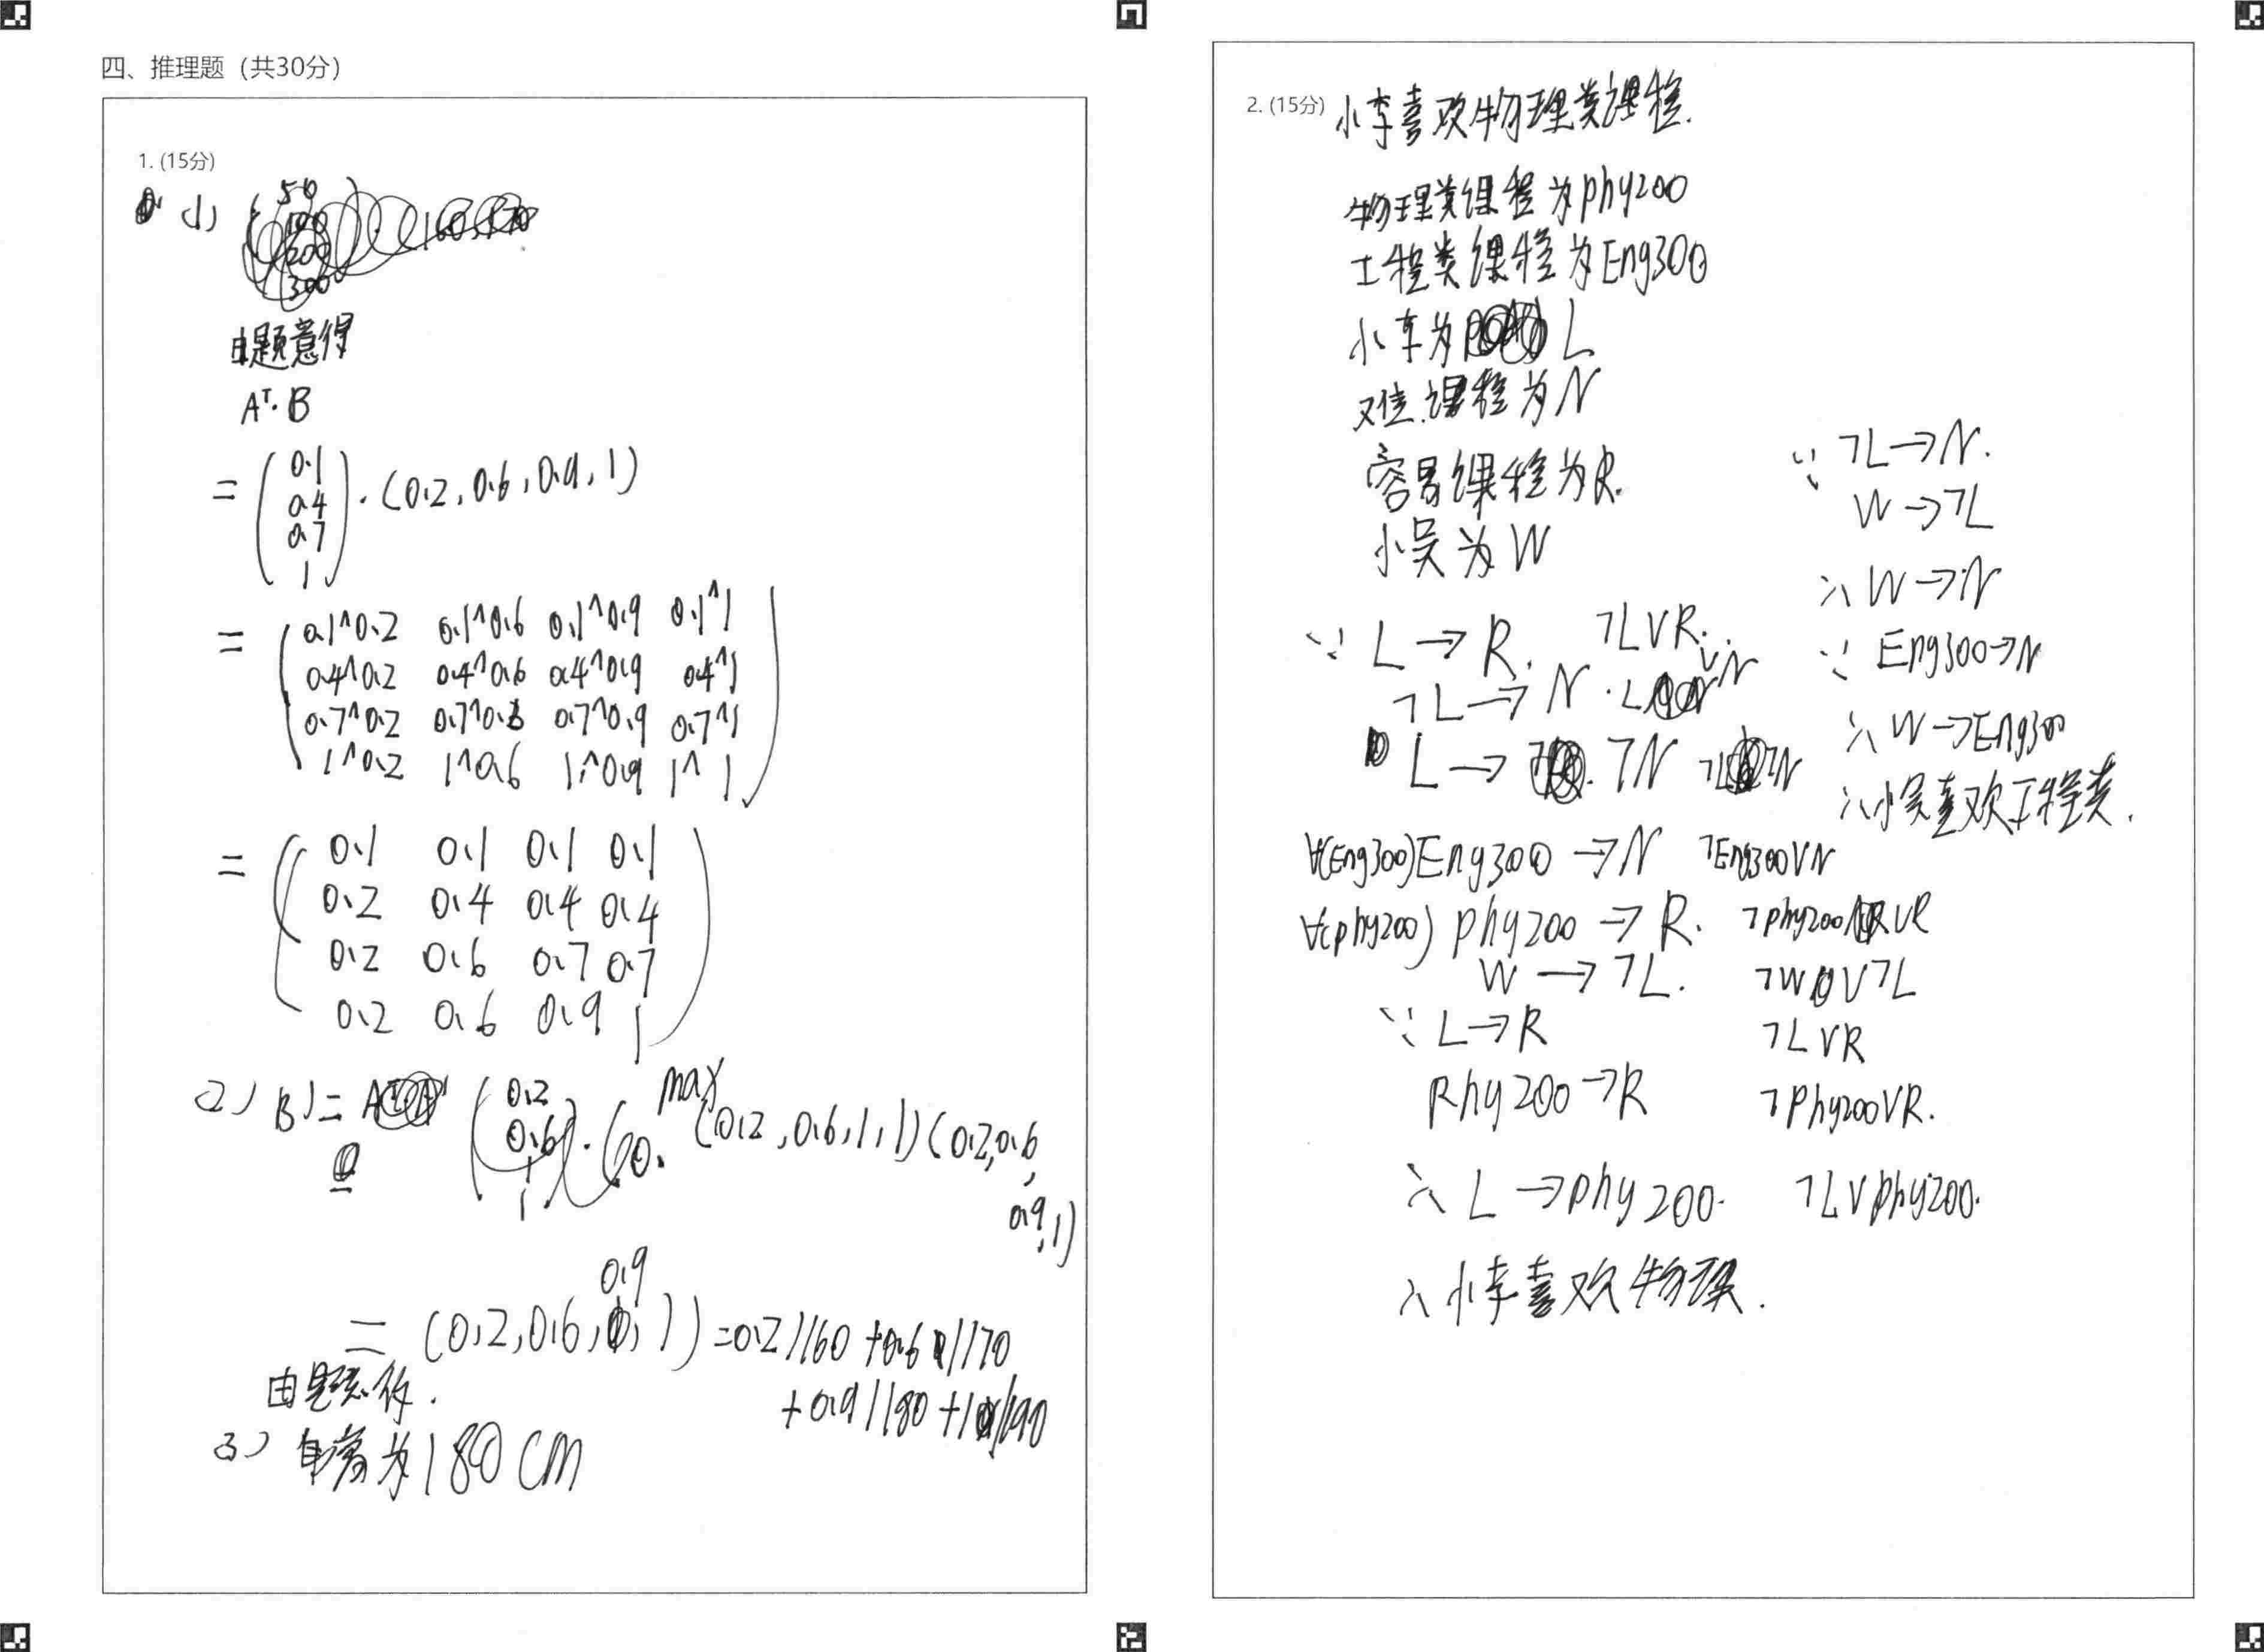 四、推理题（共30分）
1. (15分)
(1)
由题意得
Aᵀ·B
= (0.1 0.4 0.7 1) · (0.2, 0.6, 0.9, 1)
= 0.1^0.2 0.1^0.6 0.1^0.9 0.1^1
0.4^0.2 0.4^0.6 0.4^0.9 0.4^1
0.7^0.2 0.7^0.6 0.7^0.9 0.7^1
1^0.2 1^0.6 1^0.9 1^1
= 0.1 0.1 0.1 0.1
0.2 0.4 0.4 0.4
0.2 0.6 0.7 0.7
0.2 0.6 0.9 1
2) B' = max (0.2, 0.6, 1, 1) (0.2, 0.6, 0.9, 1)
= (0.2, 0.6, 0.9, 1) = 0.2/160 + 0.6/170
+ 0.9/180 + 1/190
由题意得.
3) 身高为180cm
2. (15分) 小李喜欢物理类课程.
物理类课程为phy200
工程类课程为Eng300
小李为 L
难课程为N
容易课程为R.
小吴为W
∵ L→R. ¬L∨R.
¬L→N · L∨N
L→¬N ¬L∨¬N
∀(Eng300) Eng300→N ¬Eng300∨N
∀(phy200) phy200→R. ¬phy200∨R
W→¬L. ¬W∨¬L
∵ L→R ¬L∨R
Phy200→R ¬Phy200∨R.
∴ L→phy200. ¬L∨phy200.
∴ 小李喜欢物理.
∵ ¬L→N.
W→¬L
∴ W→N
∵ Eng300→N
∴ W→Eng300
∴ 小吴喜欢工程类.